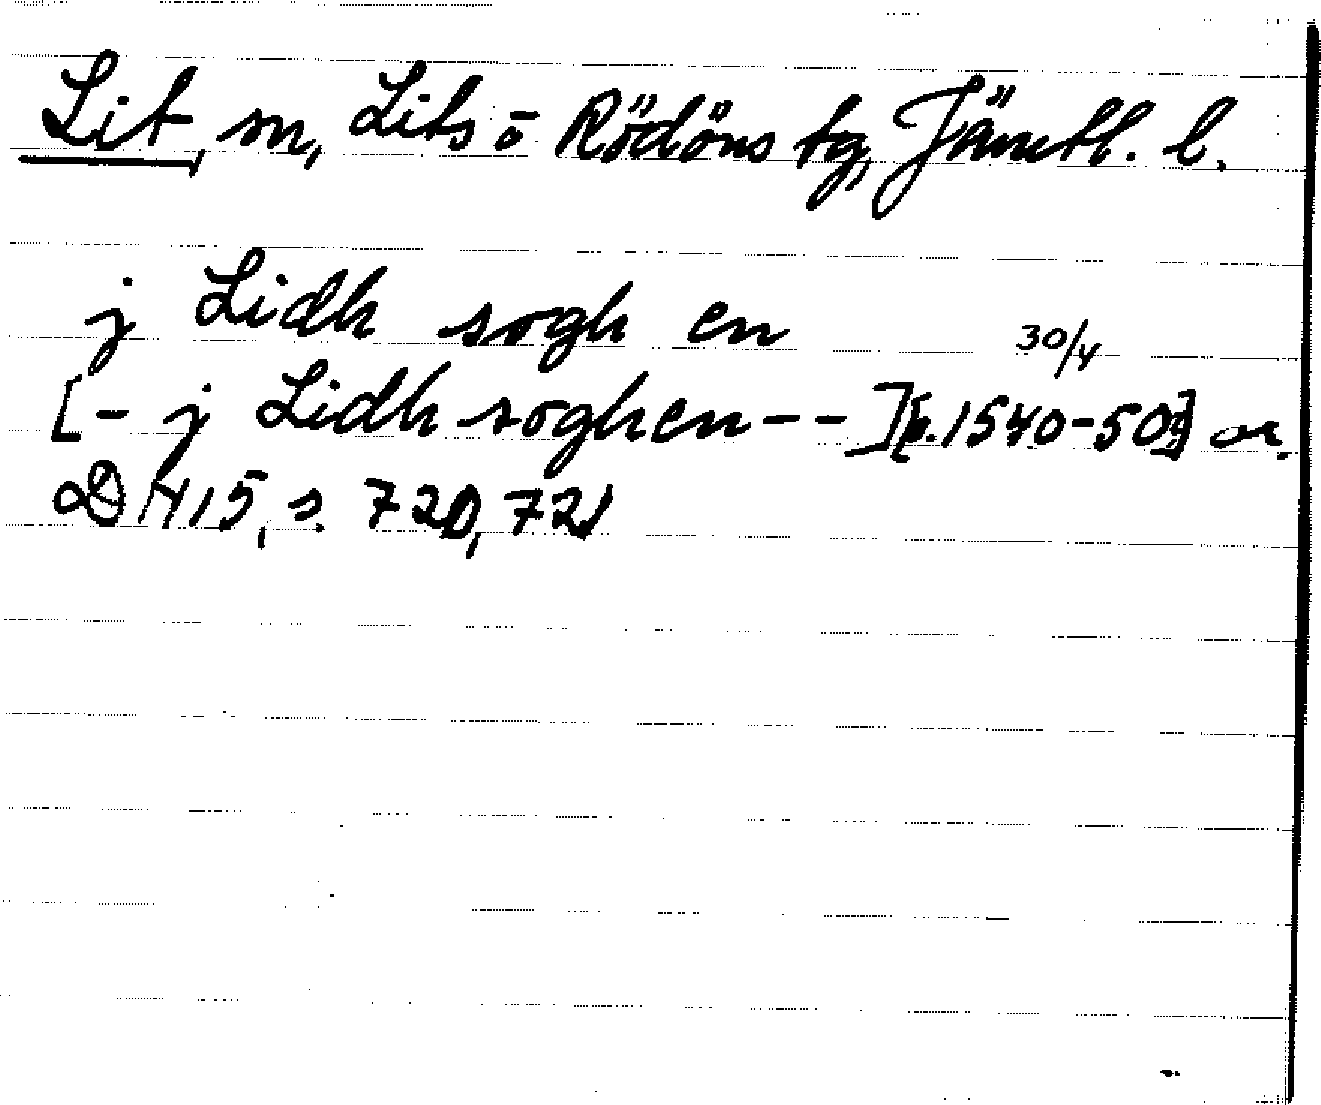 Lit, sn, Lits o Rödöns tg, Jämtl. l.
j Lidh sogh en 30/4
[- j Lidh soghen - - ] [b. 1540-50] or.
D 1415, s. 720, 721